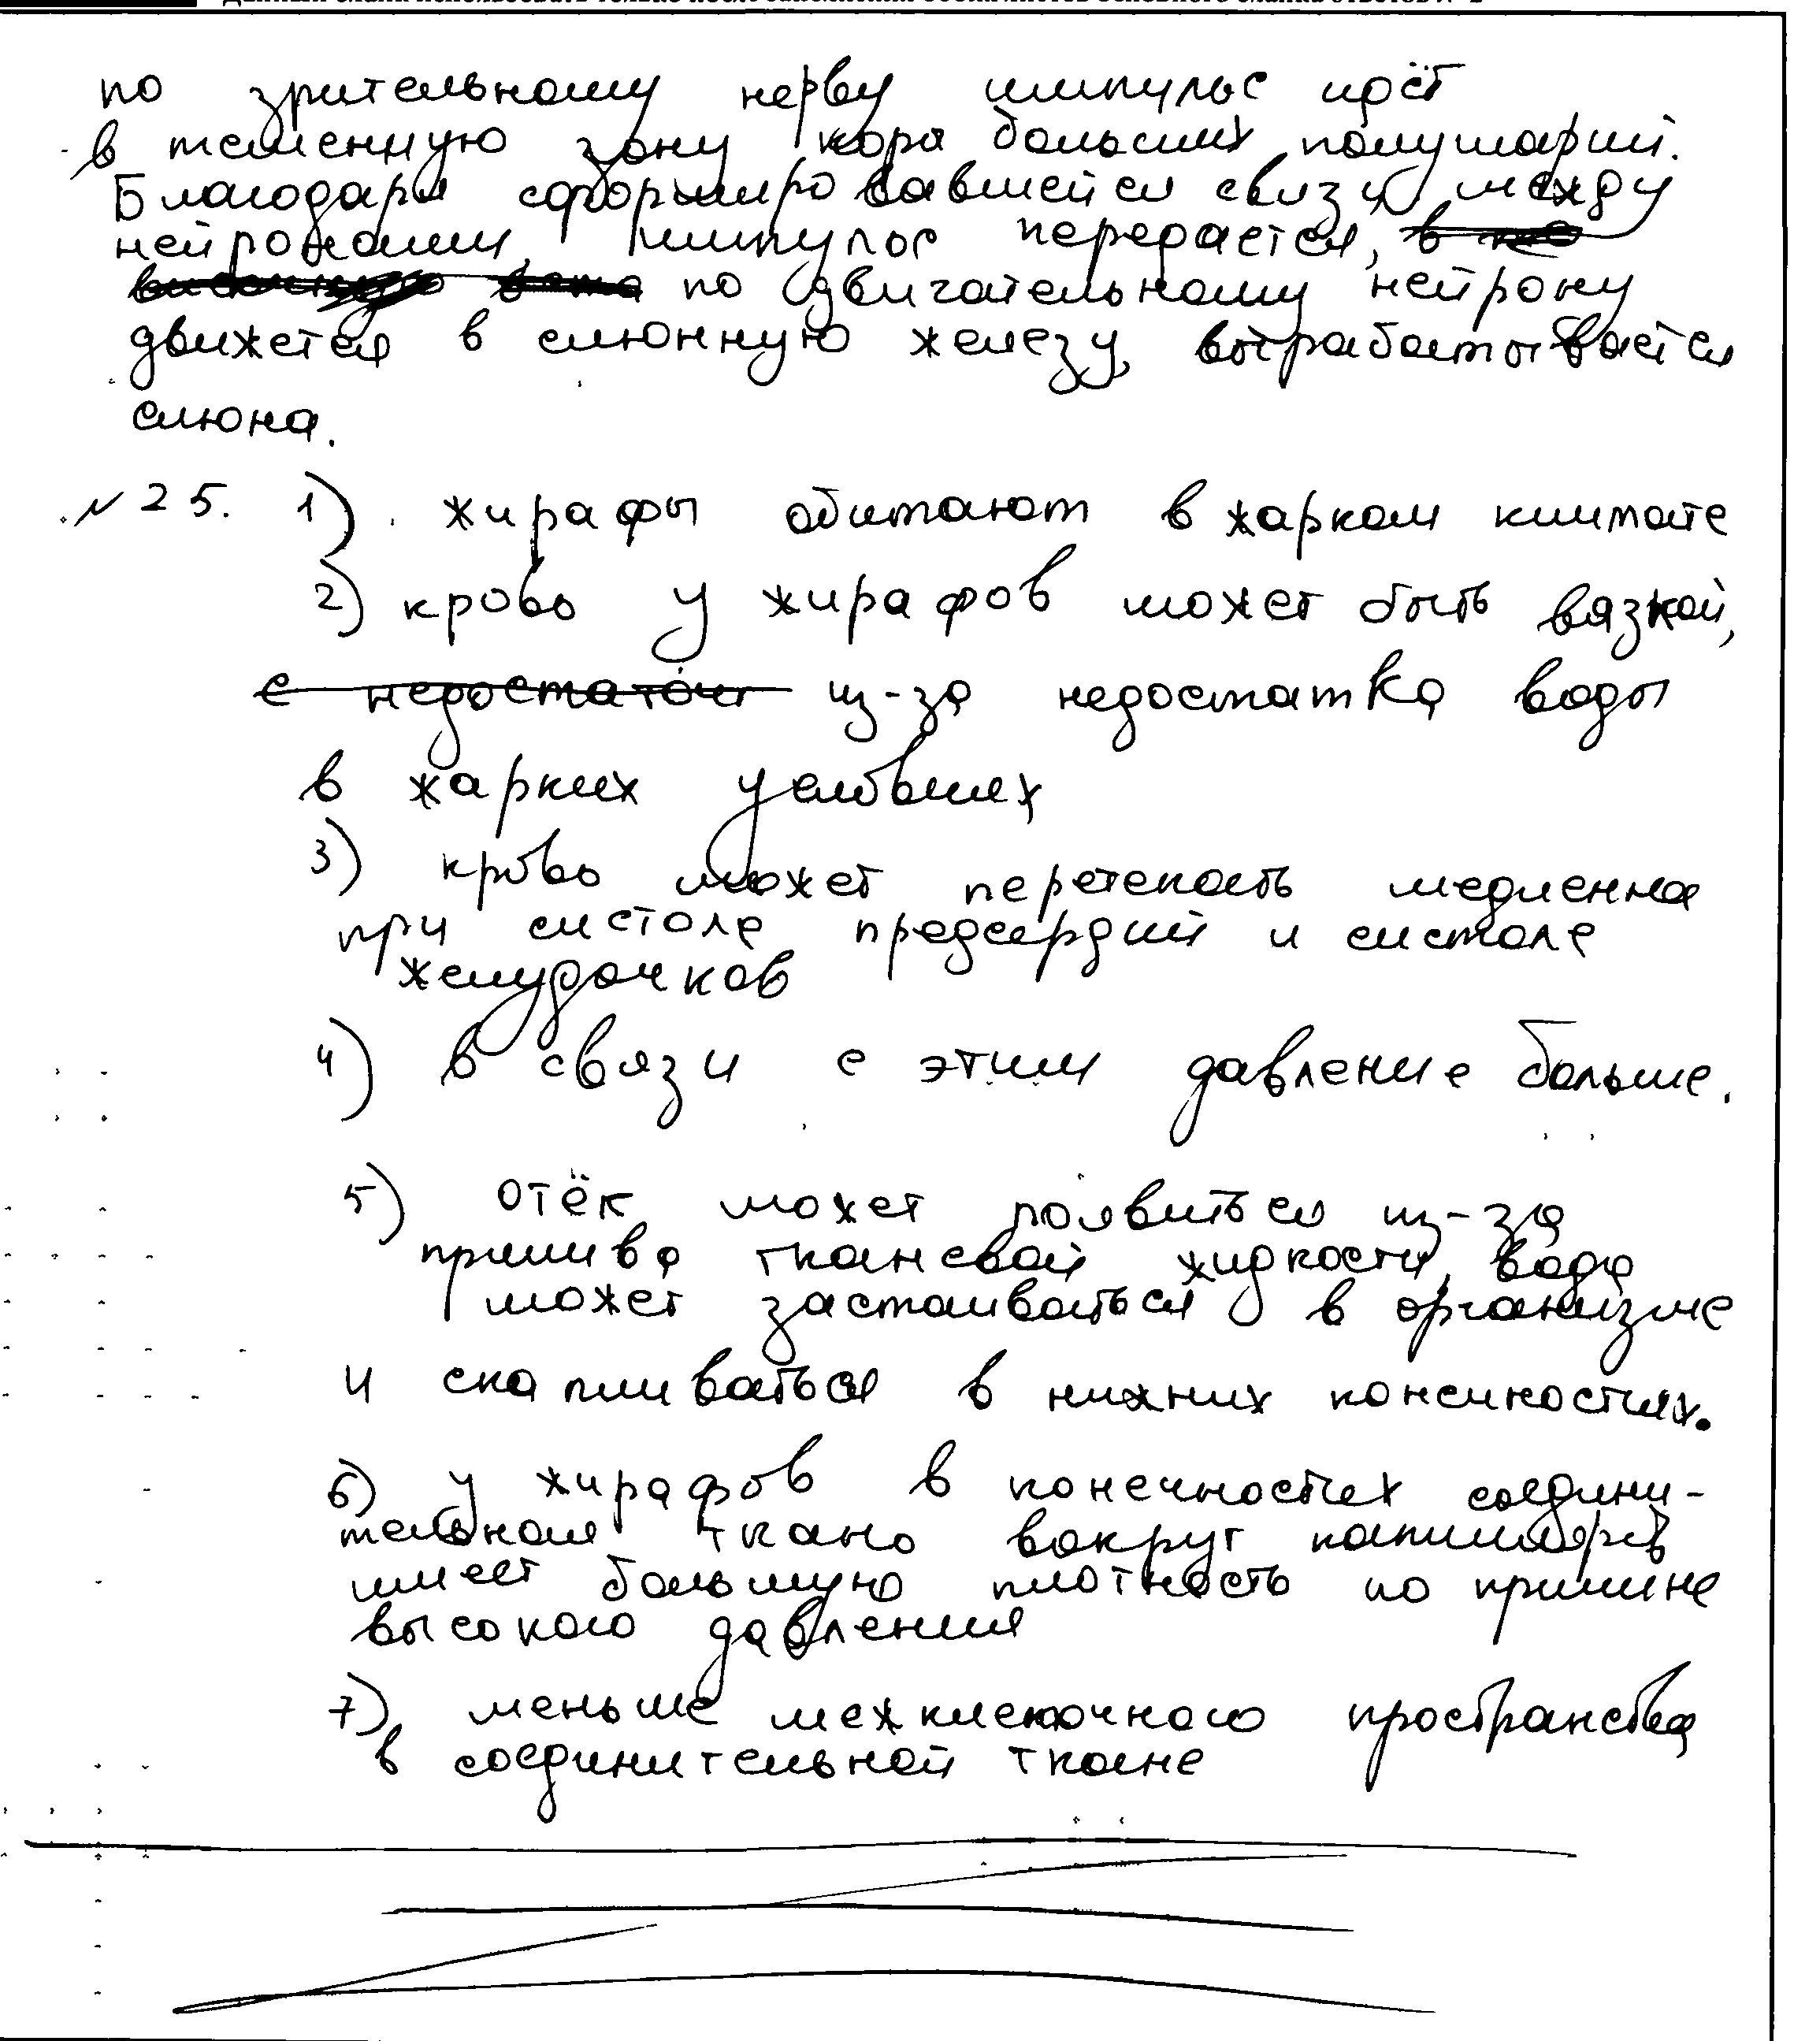 по зрительному нерву импульс идёт
в теменную зону кора больших полушарий.
Благодаря сформировавшейся связи между
нейронами, импульс передается,
по двигательному нейрону
движется в слюнную железу, вырабатывается
слюна.
№ 25. 1) жирафы обитают в жарком климате
2) кровь у жирафов может быть вязкой,
с недостаточ из-за недостатка воды
в жарких условиях
3) кровь может перетекать медленно
при систоле предсердий и систоле
желудочков
4) в связи с этим давление больше.
5) отёк может появиться из-за
прилива тканевой жидкости, вода
может застаиваться в организме
и скапливаться в нижних конечностях.
6) у жирафов в конечностях соедини-
тельная ткань вокруг капилляров
имеет большую плотность по причине
высокого давления
7) меньше межклеточного пространства
в соединительной ткане